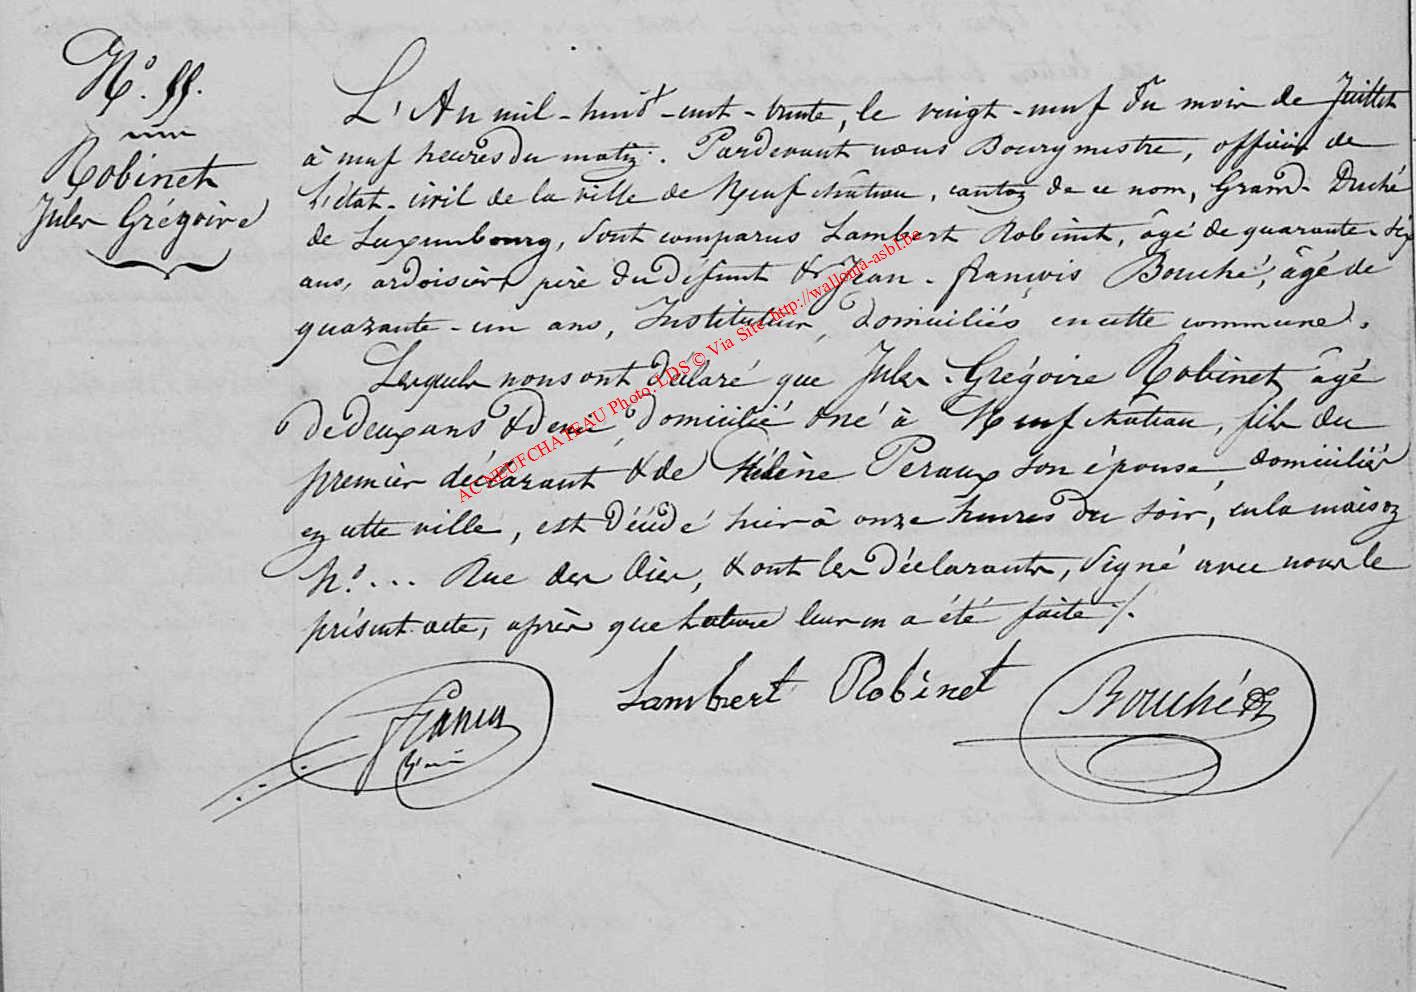 N° 55.
Robinet
Jules Grégoire
L'An mil-huit-cent-trente, le vingt-neuf du mois de Juillet
à neuf heures du matin. Pardevant nous Bourgmestre, officier de
l'état-civil de la ville de Neufchâteau, canton de ce nom, Grand-Duché
de Luxembourg, sont comparus Lambert Robinet, âgé de quarante-six
ans, ardoisier, père du défunt & Jean-françois Bouché, âgé de
quarante-un ans, Instituteur, domiciliés en cette commune.
Lesquels nous ont déclaré que Jules-Grégoire Robinet âgé
de deux ans & demi, domicilié & né à Neufchâteau, fils du
premier déclarant & de Hélène Peraux son épouse, domiciliés
en cette ville, est décédé hier à onze heures du soir, en la maison
N°. ... Rue des Oies, & ont les déclarants, signé avec nous le
présent acte, après que lecture leur en a été faite ./.
Lambert Robinet
Bouché
AC NEUFCHATEAU Photo: LDS © Via Site http://wallonia-asbl.be